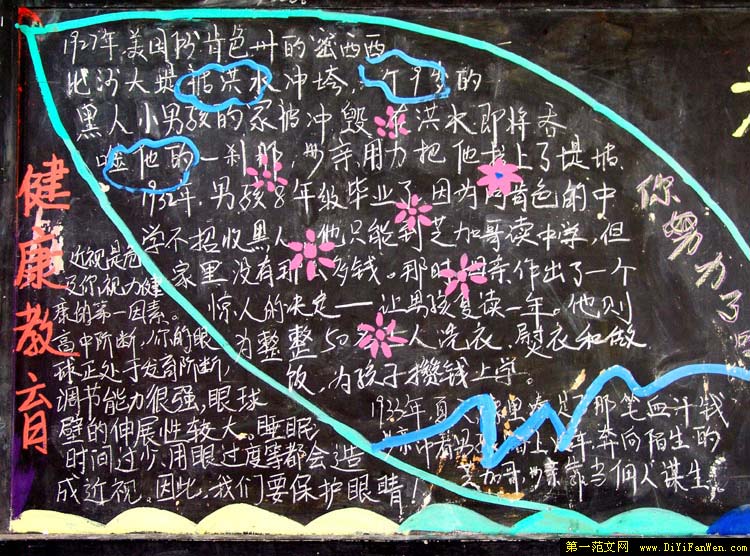 1927年,美国阿肯色州的密西西
比河大堤被洪水冲垮,一个9岁的
黑人小男孩的家被冲毁,在洪水即将吞
噬他的一刹那,母亲用力把他拉上了堤坡。
1932年,男孩8年级毕业了,因为阿肯色的中
学不招收黑人,他只能到芝加哥读中学,但
家里没有那么多钱。那时,母亲作出了一个
惊人的决定——让男孩复读一年。她则
为整整50名工人洗衣、熨衣和做
饭,为孩子攒钱上学。
1933年,夏天,家里凑足了那笔血汗钱
母亲带着男孩踏上火车,奔向陌生的
芝加哥,母亲靠当佣人谋生。
健康教育
近视是危
及你视力健
康的第一因素。
高中阶断,你的眼
球正处于发育阶断,
调节能力很强,眼球
壁的伸展性较大。睡眠
时间过少、用眼过度等都会造
成近视。因此,我们要保护眼睛!
你努力了
第一范文网 www.DiYiFanWen.com